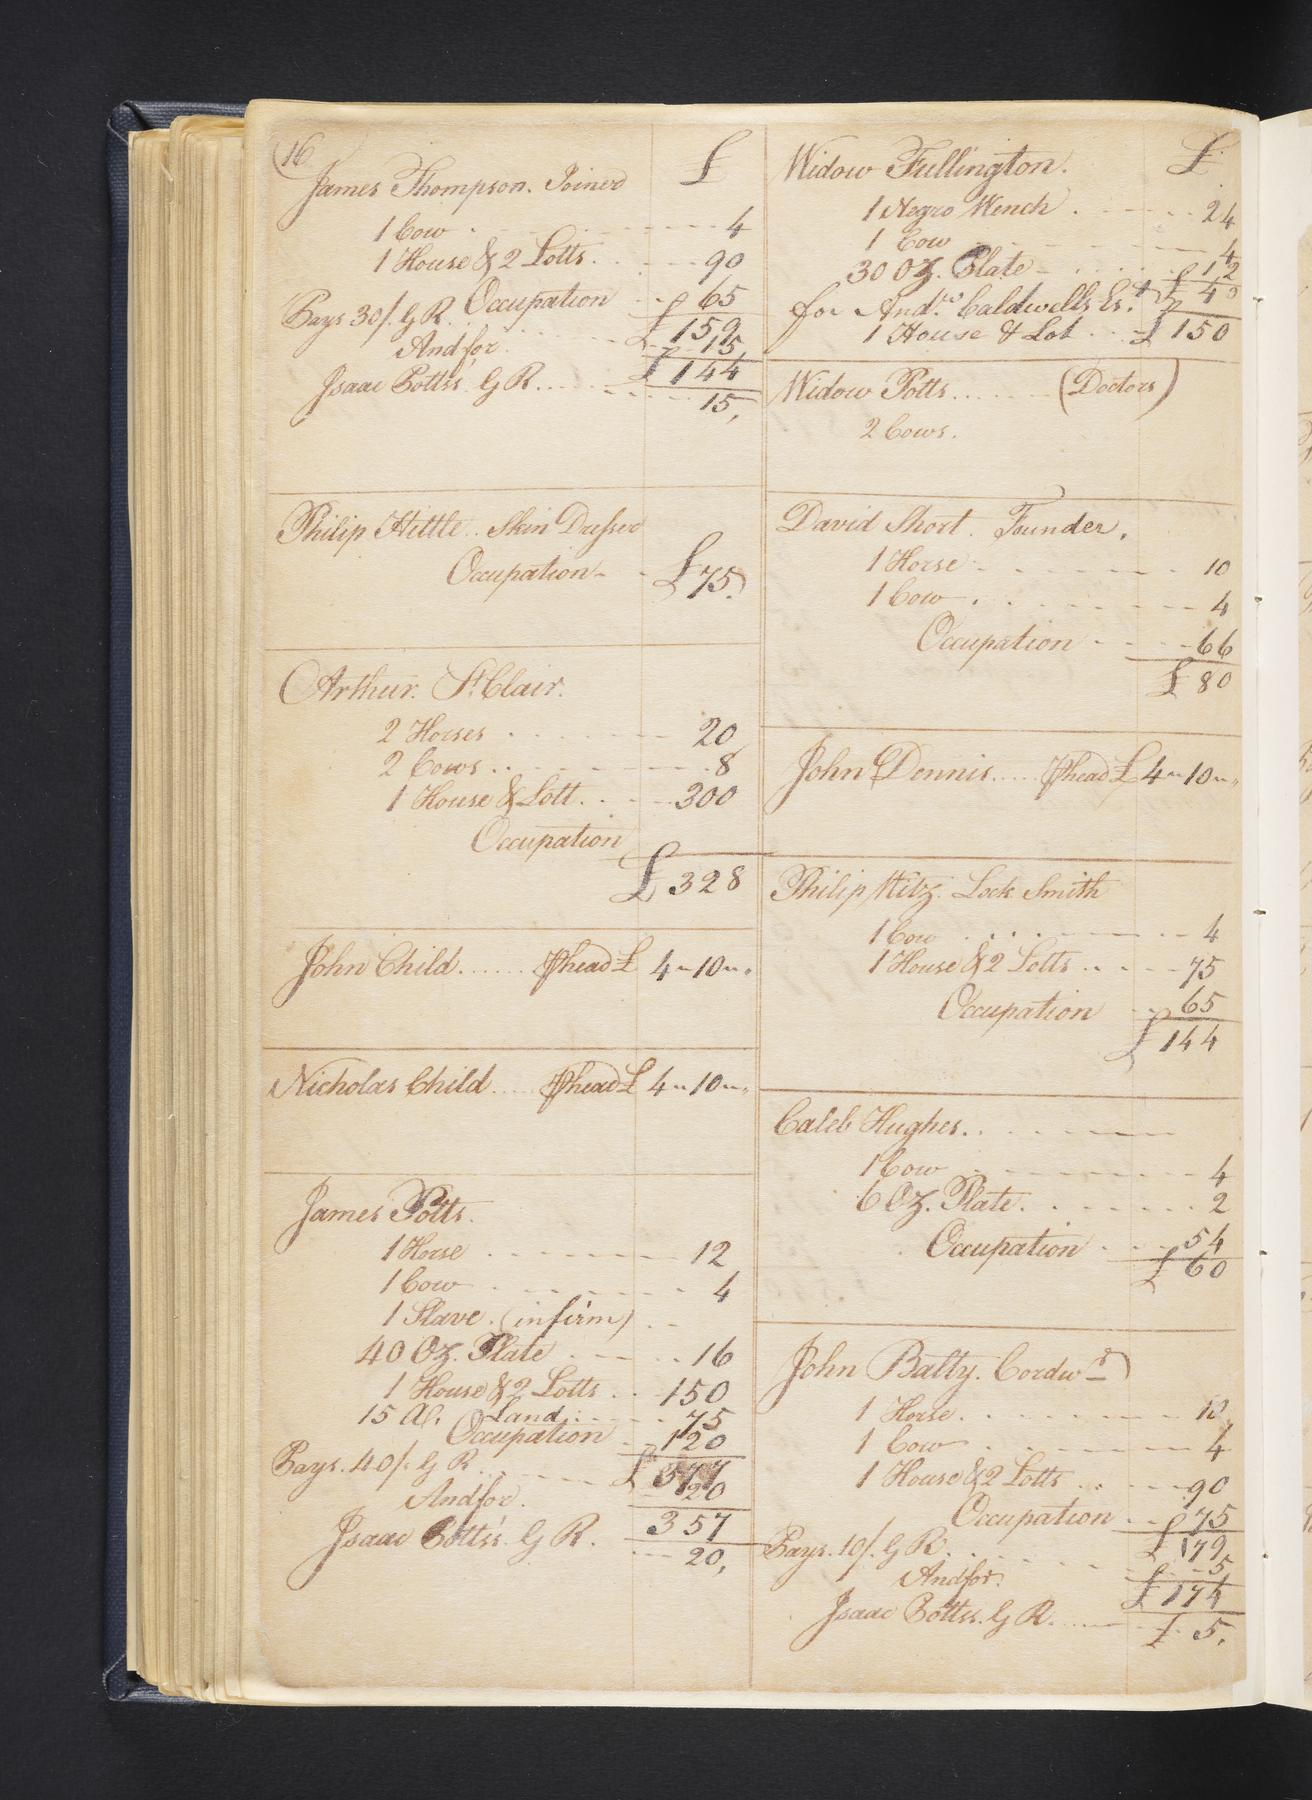 16
James Thompson. Joiner £
1 Cow 4
1 House & 2 Lotts 90
Occupation 65
Pays 30/. G R. £ 159
And for 15,
£ 144
Isaac Potts's. G R. 15,
Philip Hittle. Skin Dresser
Occupation £ 75.
Arthur. St. Clair.
2 Horses 20
2 Cows 8
1 House & Lott 300
Occupation
£ 328
John Child P head £ 4 " 10 " "
Nicholas Child P head £ 4 " 10 " "
James Potts.
1 Horse 12
1 Cow 4
1 Slave. (infirm)
40 Oz. Plate 16
1 House & 2 Lotts 150
15 A. Land 75
Occupation 120
Pays. 40/. G R £ 377
And for. 20
357
Isaac Potts's. G R. 20,
Widow Fullington. £
1 Negro Wench 24
1 Cow 4
30 Oz. Plate 12
£ 40
for Andrw. Caldwells Es:t
1 House & Lot £ 150
Widow Potts (Doctors)
2 Cows.
David Short. Founder.
1 Horse 10
1 Cow 4
Occupation 66
£ 80
John Dennis P head £ 4 " 10 " "
Philip Lock Smith
1 Cow 4
1 House & 2 Lotts 75
Occupation 65
£ 144
Caleb Hughes.
1 Cow 4
6 Oz. Plate. 2
Occupation 54
£ 60
John Balty. Cordwr.
1 Horse. 10
1 Cow 4
1 House & 2 Lotts 90
Occupation 75
Pays. 10/. G R. £ 179
And for. 5
£ 174
Isaac Potts's. G R. £ 5.